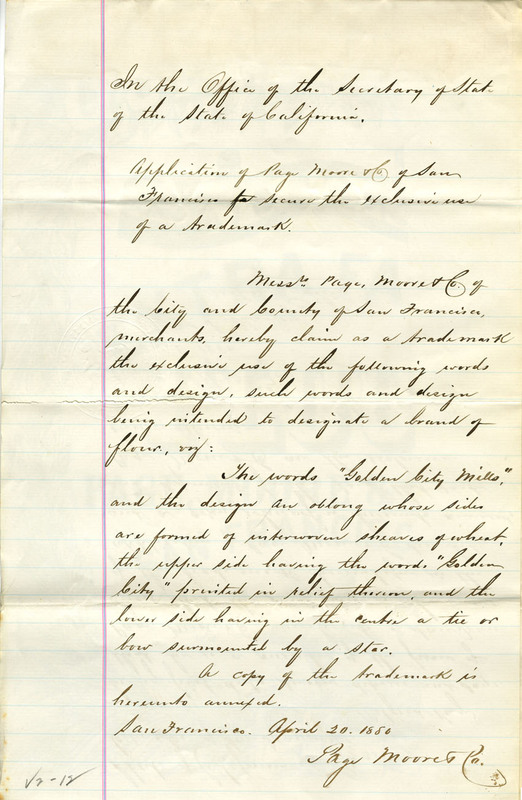 In the Office of the Secretary of State
of the State of California.
Application of Page Moore & Co of San
Francisco to secure the exclusive use
of a trademark.
Messrs. Page, Moore & Co. of
the City and County of San Francisco,
merchants, hereby claim as a trademark
the exclusive use of the following words
and design, such words and design
being intended to designate a brand of
flour, viz:
The words "Golden City Mills,"
and the design an oblong whose sides
are formed of interwoven sheaves of wheat,
the upper side having the words "Golden
City" printed in relief thereon, and the
lower side having in the centre a tie or
bow surmounted by a star.
A copy of the trademark is
hereunto annexed.
San Francisco. April 20. 1880
Page Moore & Co.